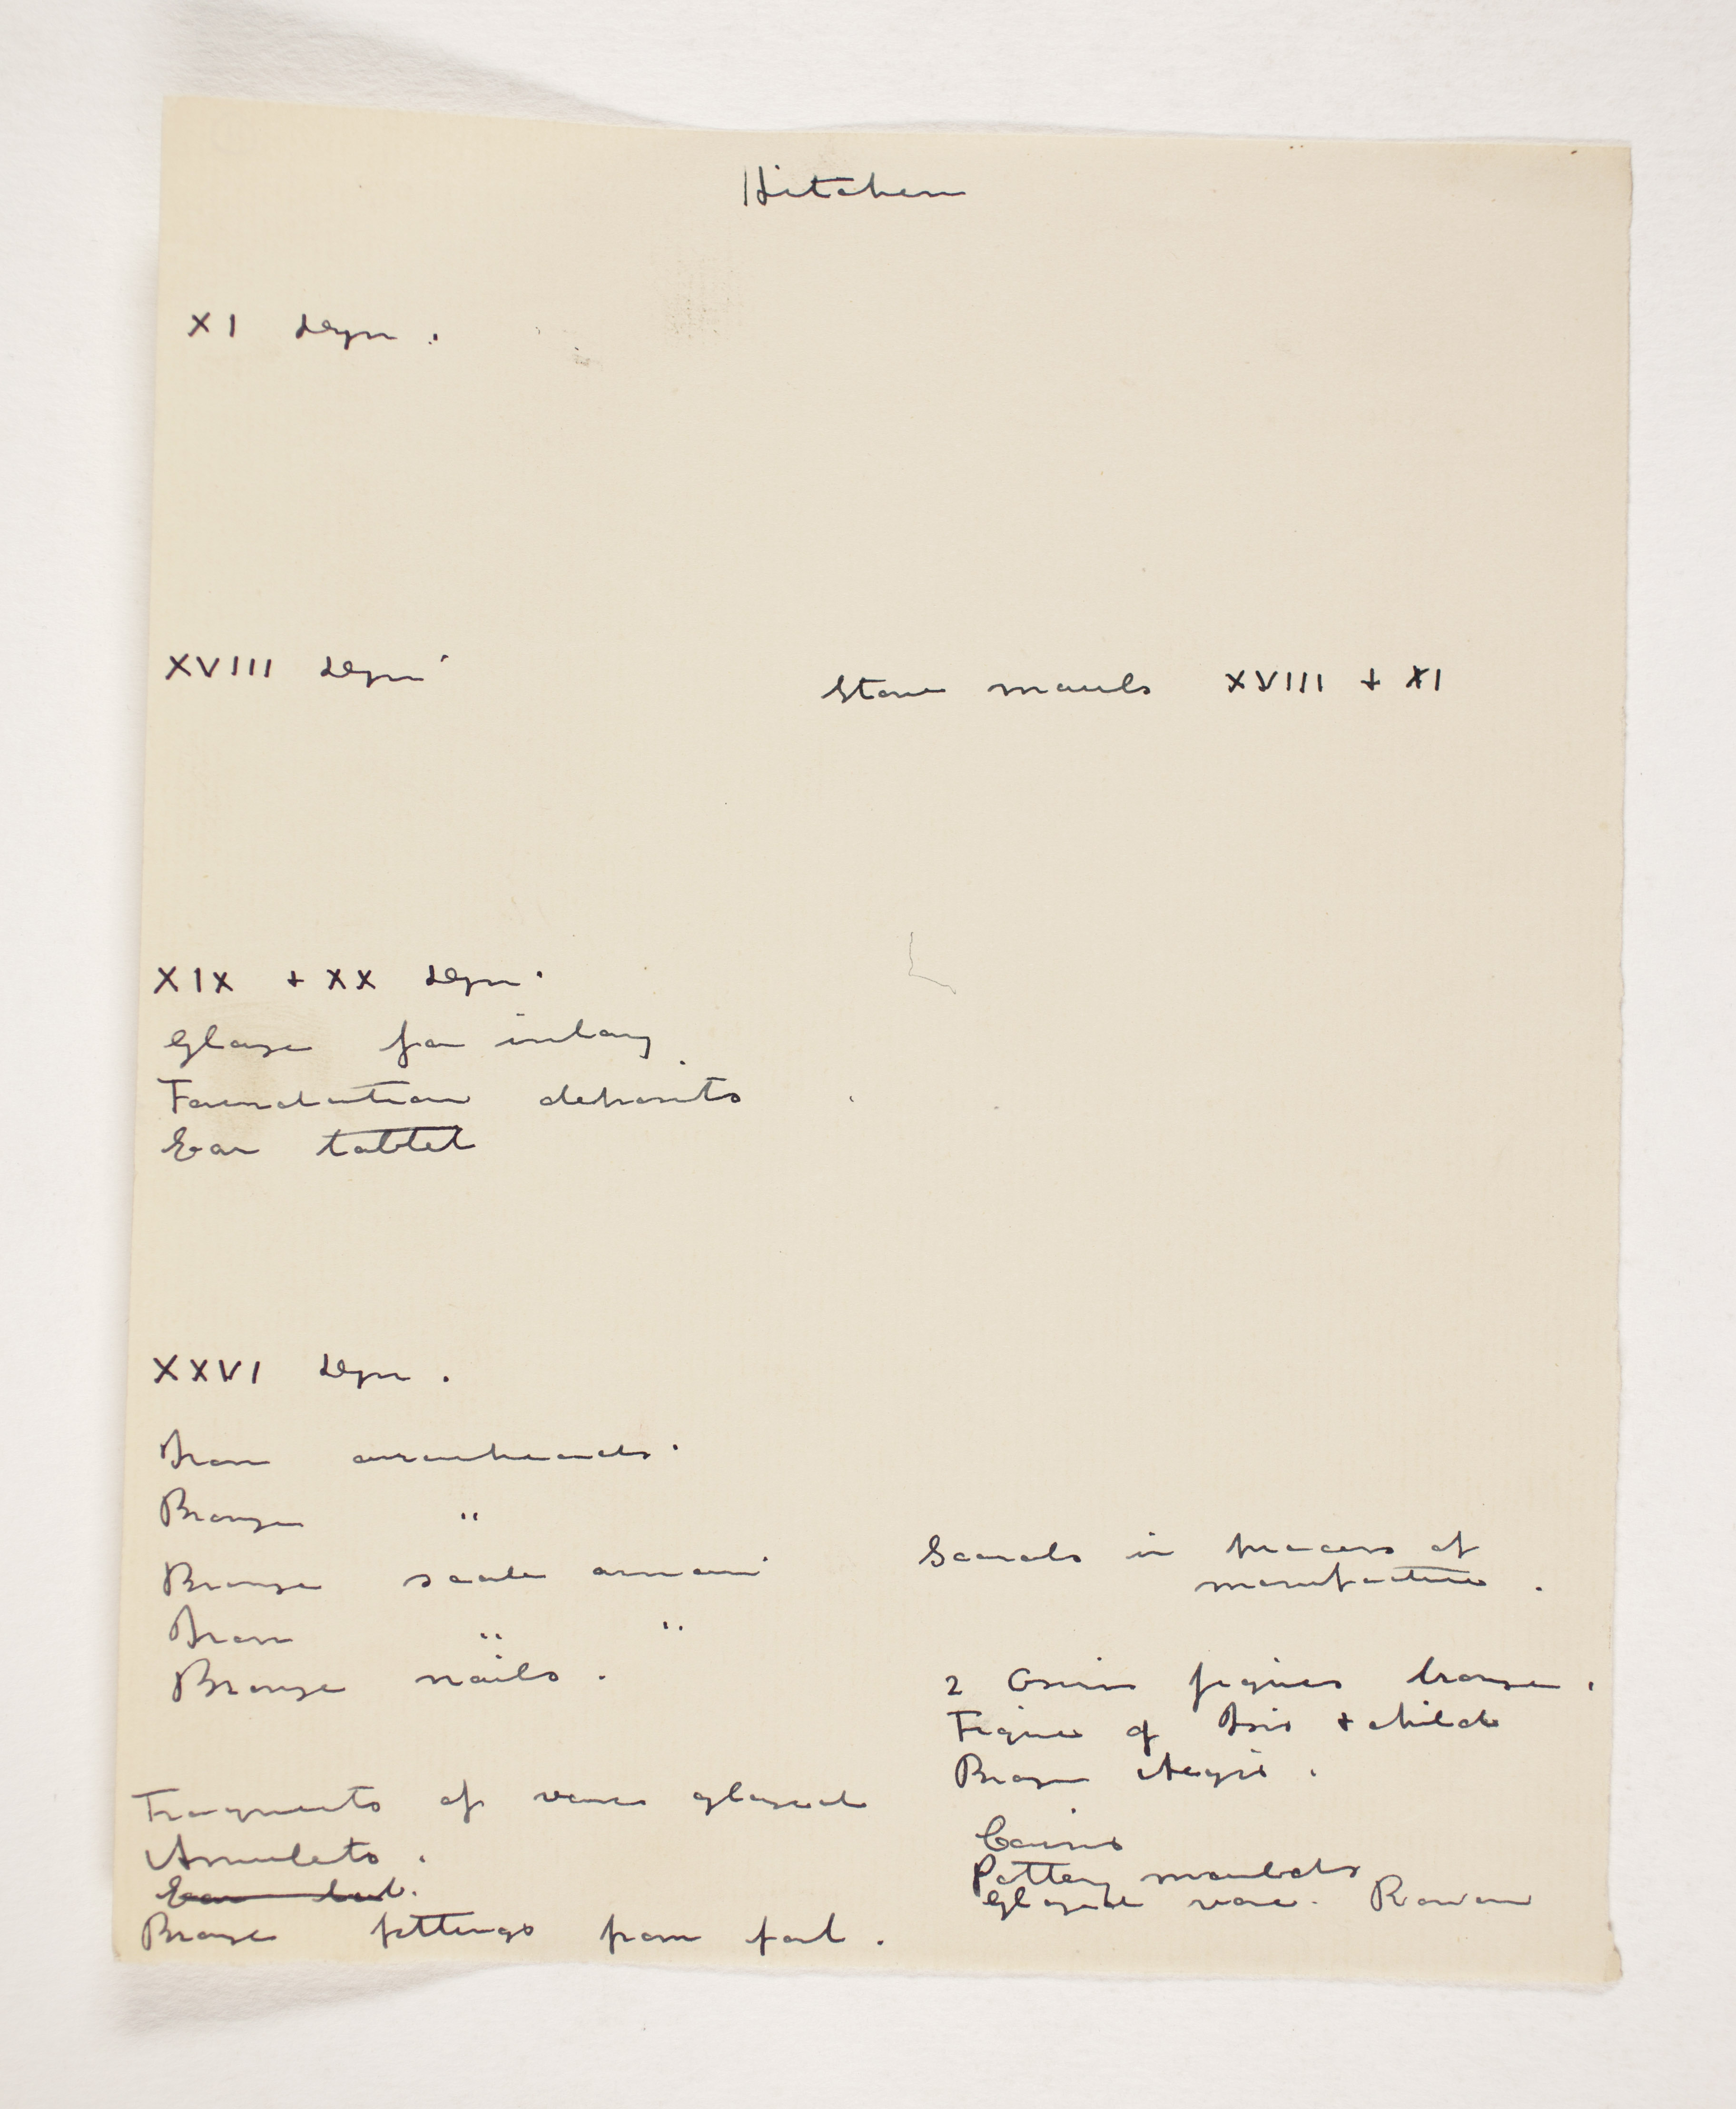 Hitchen
XI Dyn.
XVIII Dyn.
Stone mauls XVIII + XI
XIX + XX Dyn.
Glaze for inlay
Foundation deposits
Ear tablet
XXVI Dyn.
Iron arrowheads.
Bronze "
Bronze scale armour
Iron " "
Bronze nails.
Fragments of vases glazed
Amulets.
Bronze fittings from fort.
Scarabs in process of
manufacture.
2 Osiris figures bronze.
Figure of Isis + child
Bronze Aegis.
Coins
Pottery moulds
Glazed vase. Roman